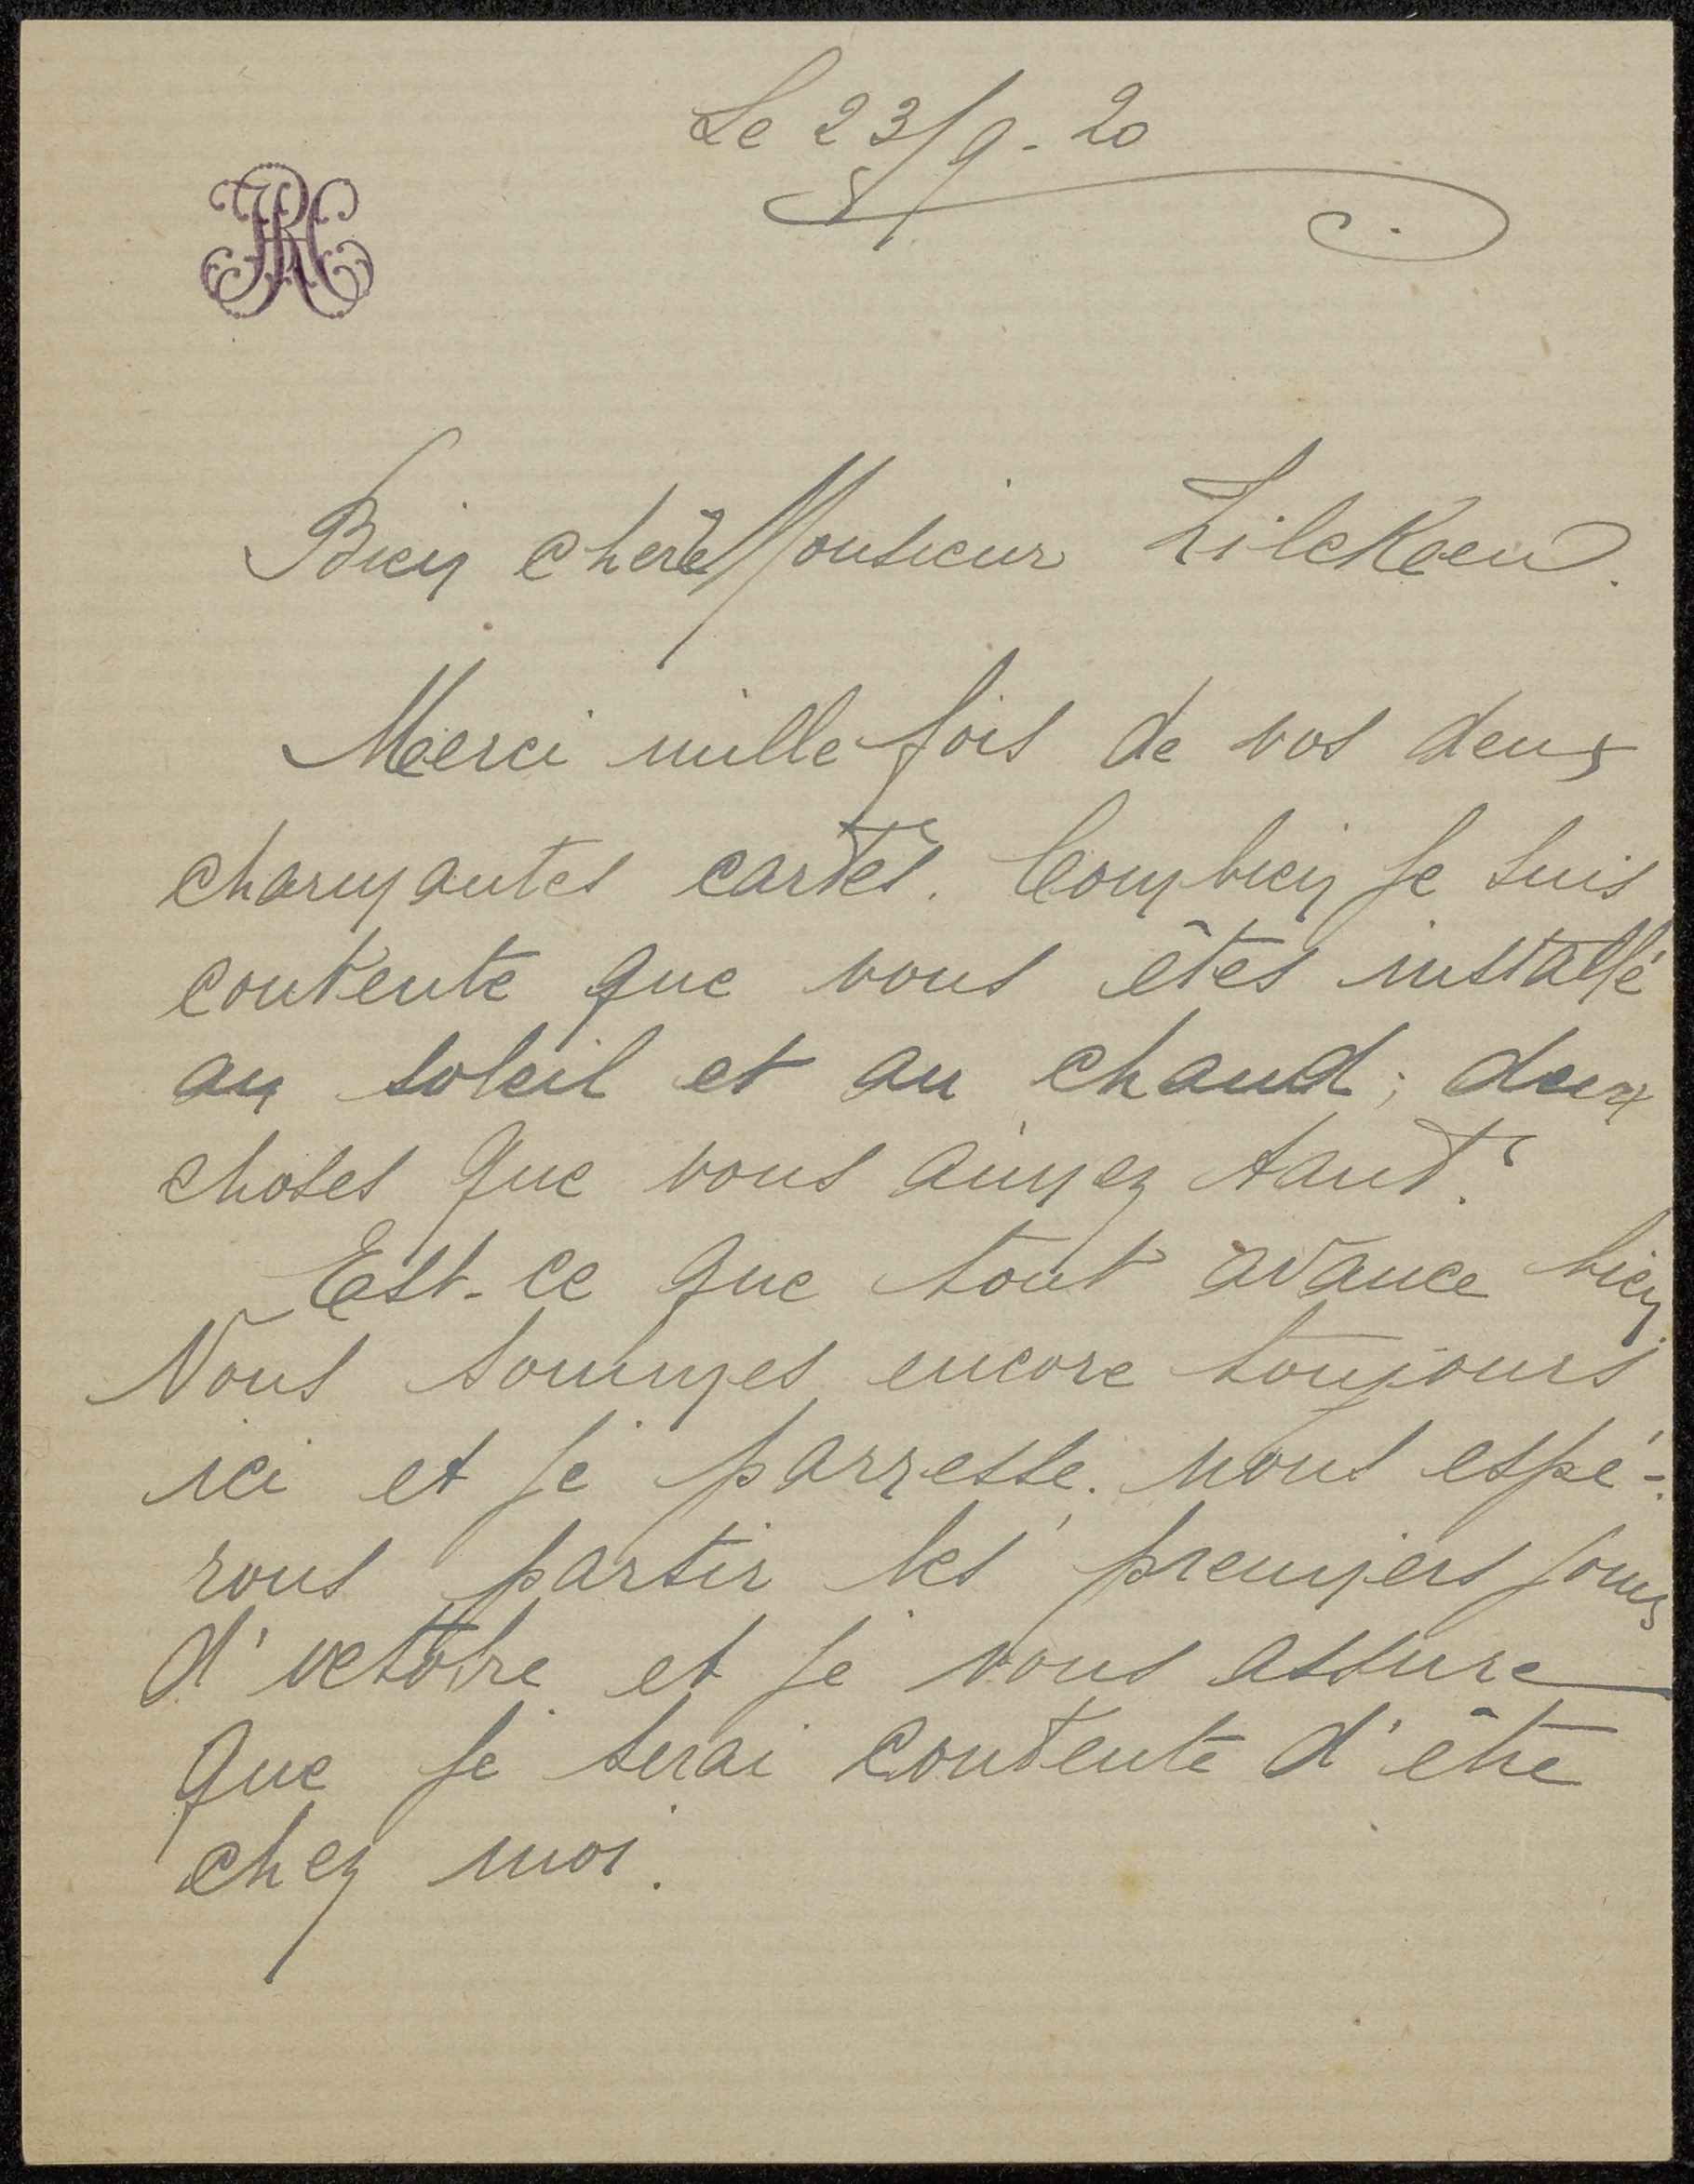 Le 23/9-20
Bien chère Monsieur Zilckeen.
Merci mille fois de vos deux
charmantes cartes. Combien je suis
contente que vous êtes installé
au soleil et au chaud; deux
choses que vous aimez tant.
Est-ce que tout avance bien
Nous sommes encore toujours
ici et je parresse. nous espé-
rons partir les premiers jours
d'octobre et je vous assure
que je serai contente d'être
chez moi.